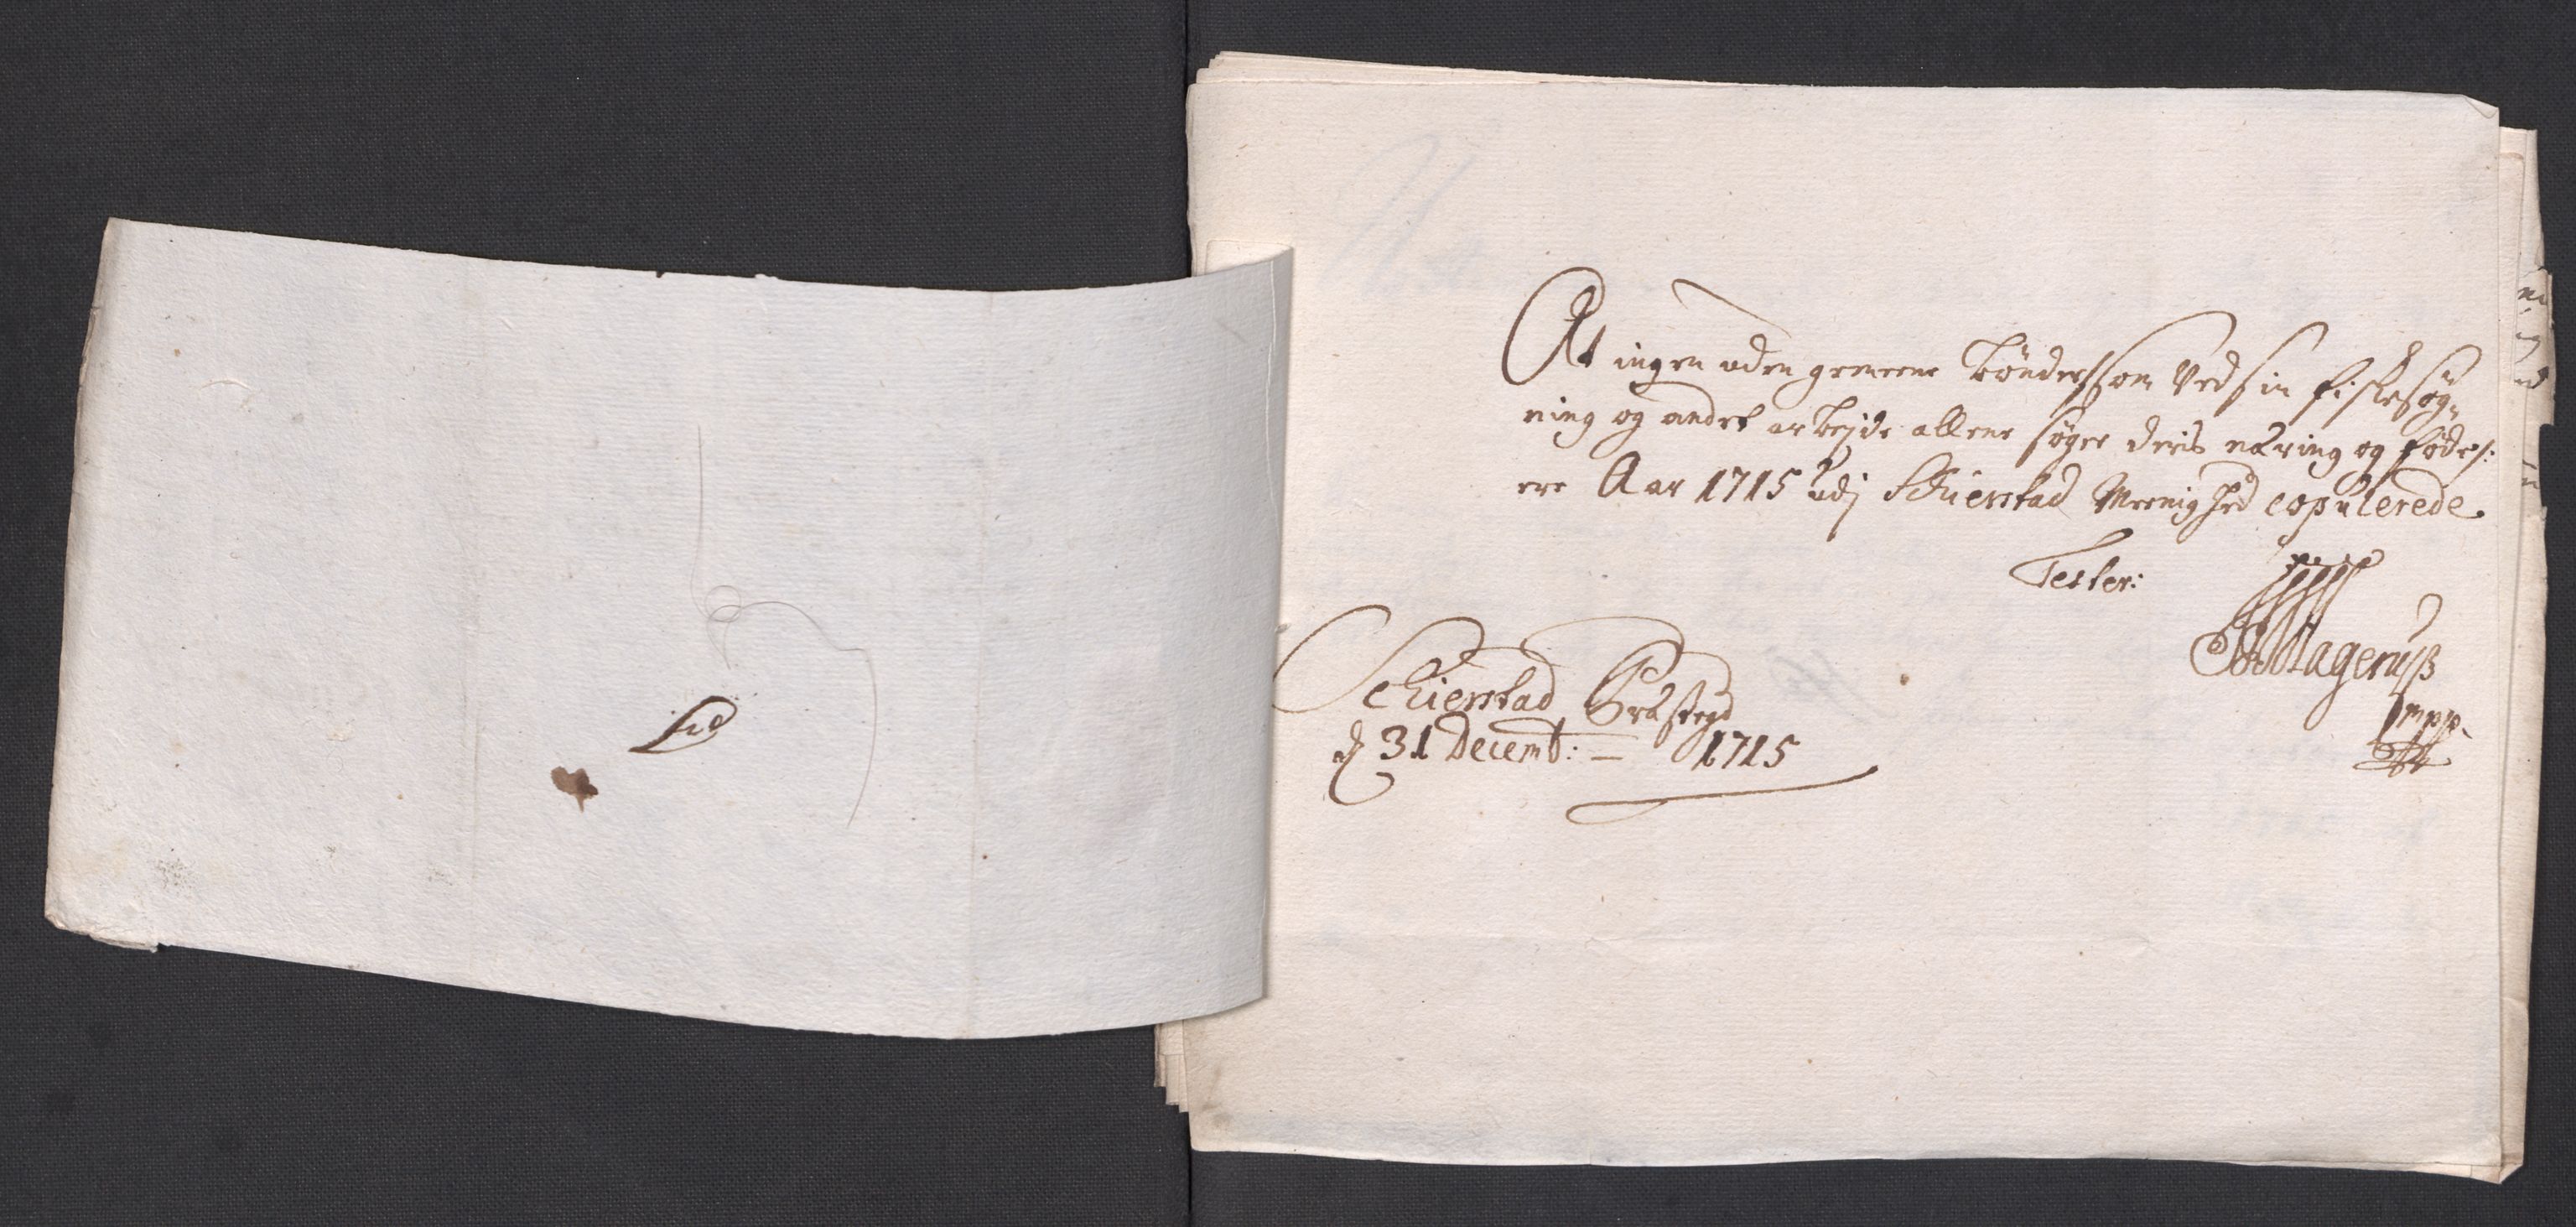 At ingen uden gemeene Bønder, som Ved sin fiskesøg-
ning og andet arbejde allene søger deris næring og føde,
ere Aar 1715 udj Schierstad Meenighed copulerede
Tester:
Hagerup
mpp
Schierstad Præstegd
d 31 Decemb: – 1715